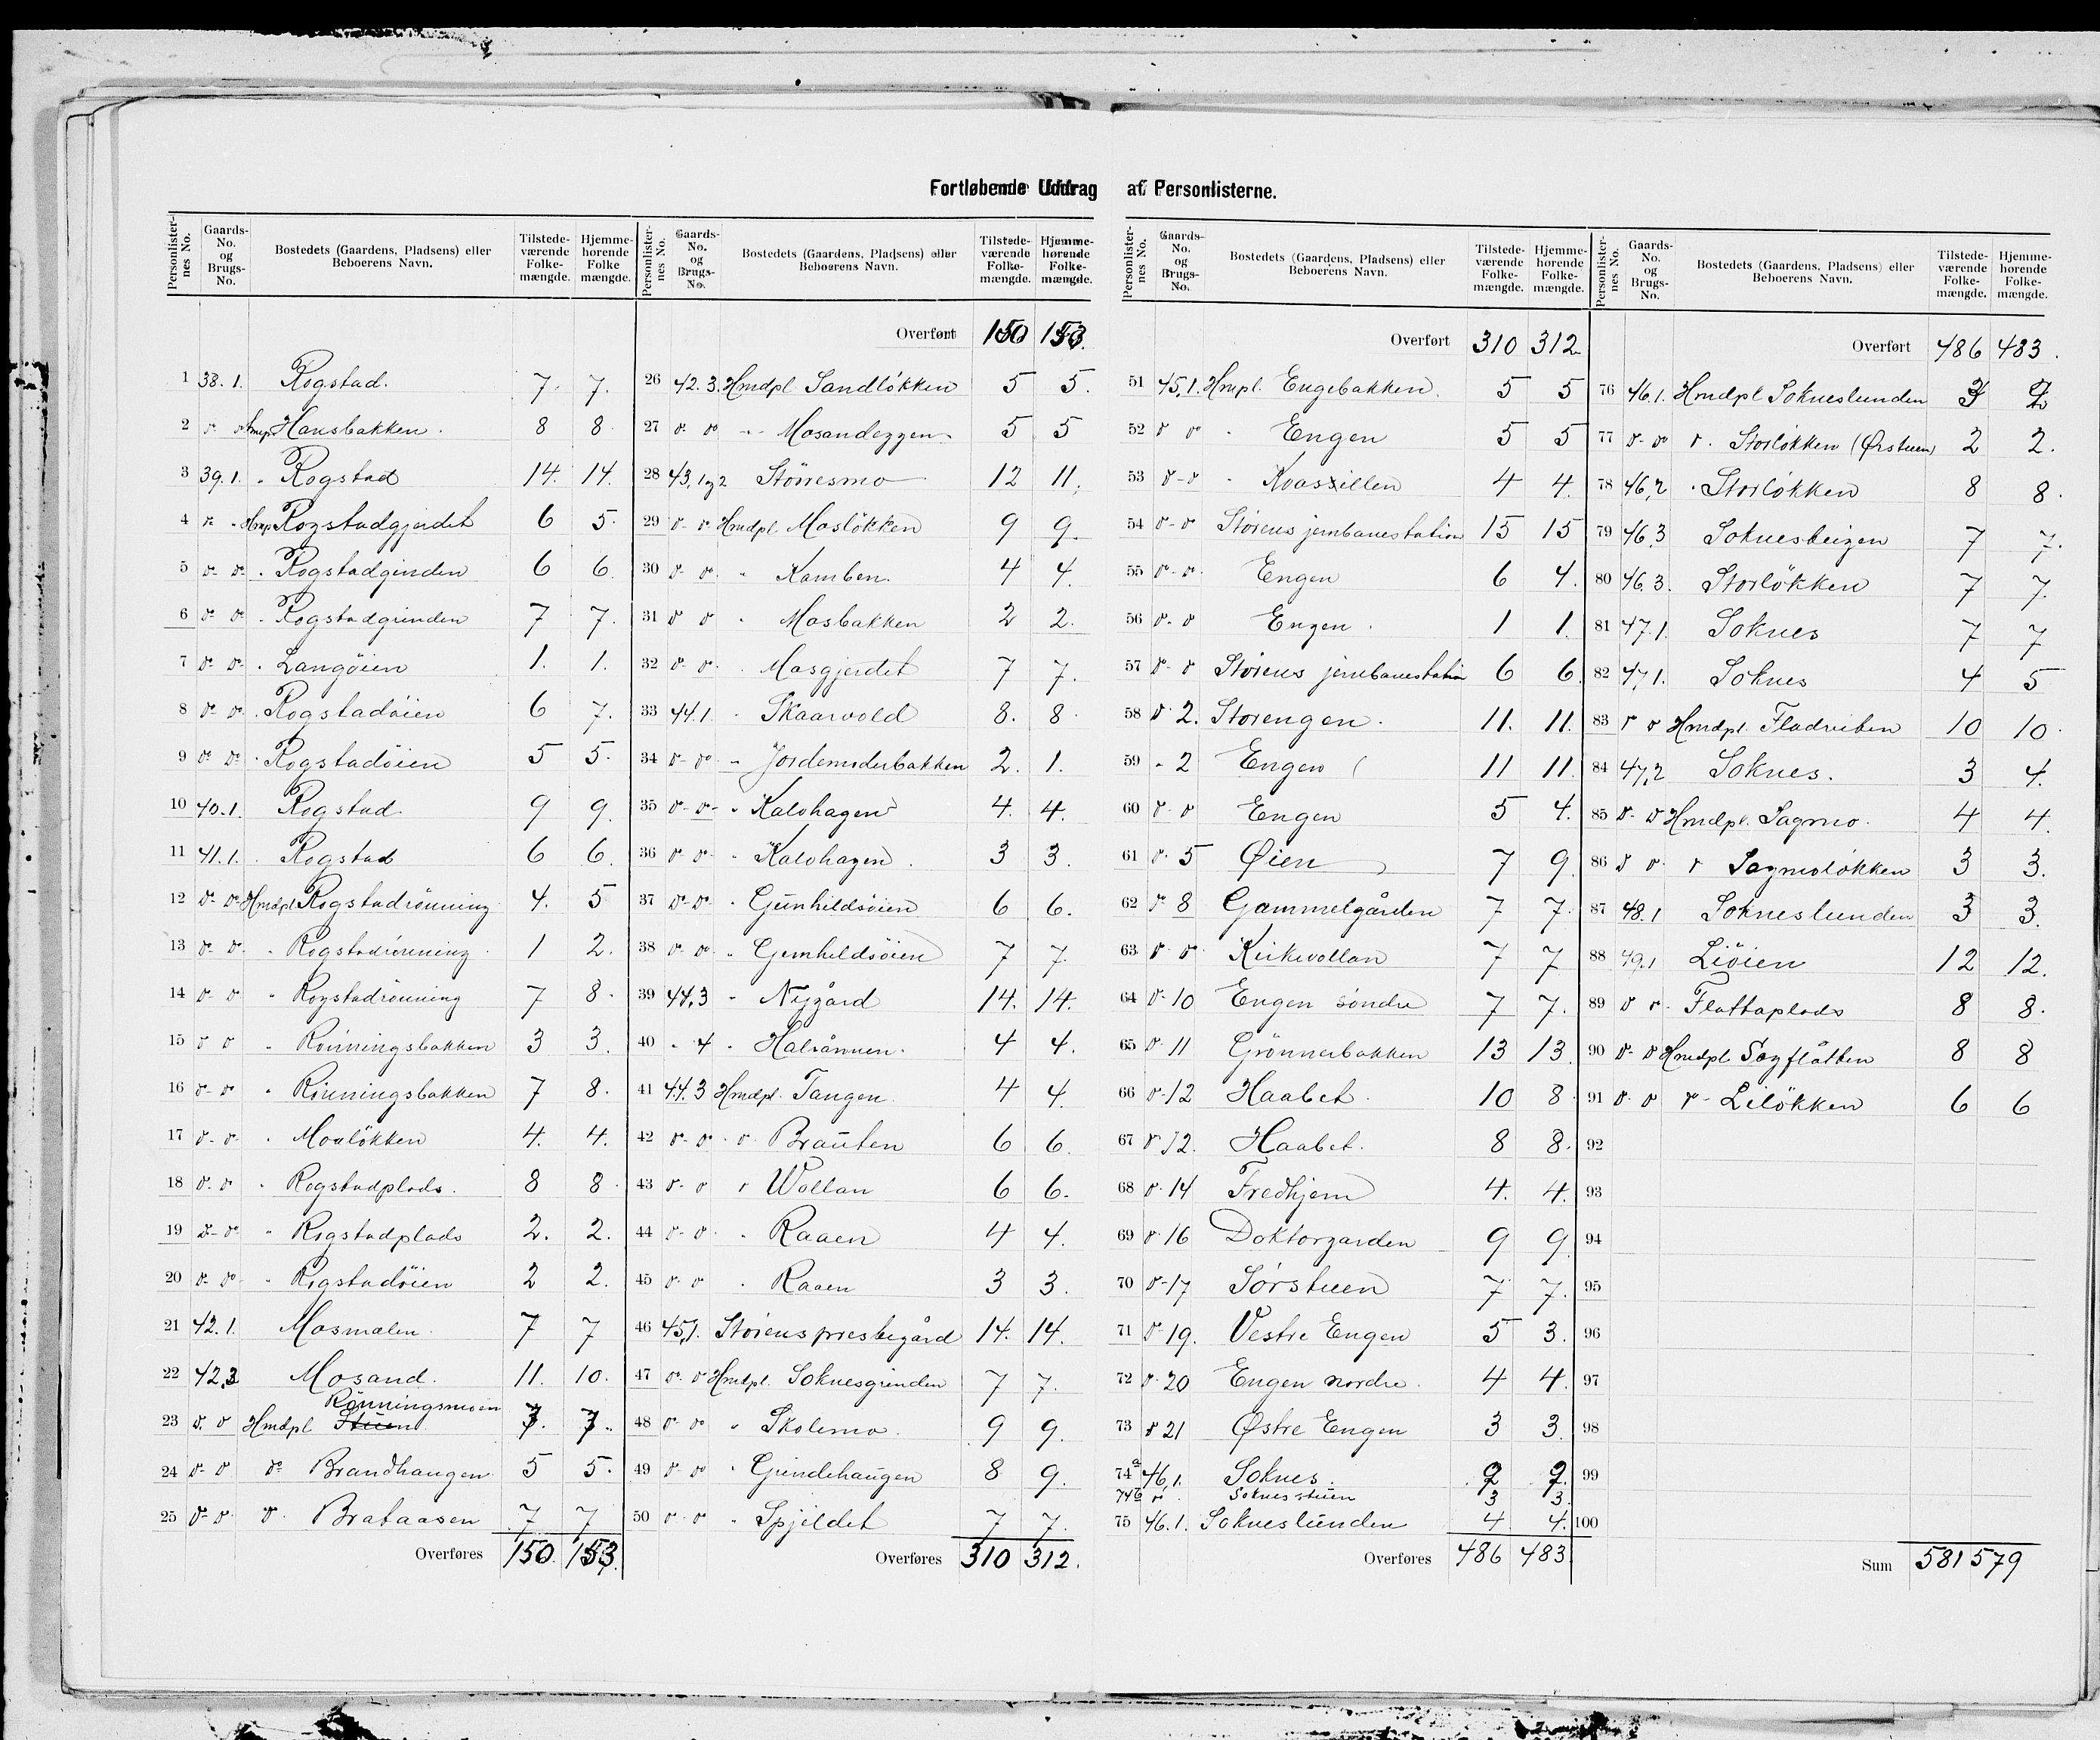 Fortløbende Uddrag af Personlisterne.
Personlisternes No. Gaards-No. og Brugs-No. Bostedets (Gaardens, Pladsens) eller Beboerens Navn. Tilstedeværende Folkemængde. Hjemmehørende Folkemængde.
1 38.1. Rogstad. 7. 7.
2 Hansbakken. 8 8
3 39.1. Rogstad 14. 14.
4 Rogstadgjerdet 6 5.
5 Rogstadgrinden 6 6
6 Rogstadgrinden 7 7.
7 Langöien 1. 1.
8 Rogstadöien 6 7.
9 Rogstadöien 5 5.
10 40.1. Rogstad 9 9.
11 41.1. Rogstad 6 6.
12 Hmdpl Rogstadrönning 4. 5
13 Rogstadrönning 1 2.
14 Rogstadrönning 7 8.
15 Rönningsbakken 3 3.
16 Rönningsbakken 7 8.
17 Moslökken 4. 4.
18 Rogstadplads. 8 8
19 Rogstadplads 2. 2.
20 Rogstadöien 2 2.
21 42.1. Mosmalen 7 7
22 42.3 Mosand. 11. 10.
Rönningsmoen
23 Hmdpl Stuen 7. 7.
24 Brandhaugen 5 5.
25 Brataasen 7 7
Overføres 150. 153.
Personlisternes No. Gaards-No. og Brugs-No. Bostedets (Gaardens, Pladsens) eller Beboerens Navn. Tilstedeværende Folkemængde. Hjemmehørende Folkemængde.
Overført 150 153.
26 42.3. Hmdpl Sandlökken 5 5.
27 Mosandeggen 5 5
28 43,1og2 Störresmo 12 11.
29 Hmdpl Moslökken 9 9.
30 Kamben. 4 4.
31 Mosbakken 2 2.
32 Mosgjerdet 7 7.
33 44.1 Skaarvold 8. 8
34 Jordemoderbakken 2. 1.
35 Kalvhagen 4. 4.
36 Kalvhagen 3 3.
37 Gunhildsöien 6 6.
38 Gunhildsöien 7 7.
39 44,3 Nygård 14. 14.
40 4 Halvännen. 4 4.
41 44.3 Hmdpl. Tangen 4 4.
42 Brauten 6 6.
43 Wollan 6 6.
44 Raaen 4 4.
45 Raaen 3 3.
46 45,1. Störens prestegård 14. 14.
47 Hmdpl. Soknesgrinden 7 7.
48 Skolemo. 9 9.
49 Grindehaugen 8 9.
50 Spjeldet 7 7.
Overføres 310 312.
Personlisternes No. Gaards-No. og Brugs-No. Bostedets (Gaardens, Pladsens) eller Beboerens Navn. Tilstedeværende Folkemængde. Hjemmehørende Folkemængde.
Overført 310 312
51 45,1. Hmpl. Engebakken. 5 5
52 Engen 5 5
53 4 4.
54 Störens jernbanestation 15 15
55 Engen 6 4.
56 Engen 1 1.
57 Störens jernbanestation 6 6.
58 2. Storengen. 11. 11.
59 2 Engen 11 11.
60 Engen 5 4.
61 5 Øien 7 9.
62 8 Gammelgården 7 7.
63 Kirkevollan 7 7
64 10 Engen söndre 7 7.
65 11 Grönnerbakken 13 13.
66 12 Haabet. 10 8
67 12. Haabet. 8 8.
68 14 Fredhjem 4. 4.
69 16 Doktorgarden 9 9
70 17 Sörstuen 7 7.
71 19. Vestre Engen 5 3.
72 20 Engen nordre. 4 4.
73 21 Østre Engen 3 3.
74a 46,1. Soknes.
74b Soknesstuen 3 3.
75 46.1. Sokneslunden 4 4.
Overføres 486 483.
Personlisternes No. Gaards-No. og Brugs-No. Bostedets (Gaardens, Pladsens) eller Beboerens Navn. Tilstedeværende Folkemængde. Hjemmehørende Folkemængde.
Overført 486 483.
76 46.1. Hmdpl Sokneslunden
77 Storlökken (Ørstuen) 2 2.
78 46,2 Storlökken 8 8.
79 46,3 7 7.
80 46.3. Storlökken 7 7.
81 47.1. Soknes 7 7
82 47,1. Soknes 4 5
83 Hmdpl. Fladveiten 10 10.
84 47,2 Soknes. 3 4.
85 Hmdpl. Sagmo. 4 4.
86 Sagmolökken 3 3.
87 48.1 Sokneslunden 3 3.
88 49.1 Liöien 12 12.
89 Flattaplads 8 8.
90 Hmdpl Sagflåtten 8 8
91 Lilökken 6 6
92
93
94
95
96
97
98
99
100
Sum 581 579